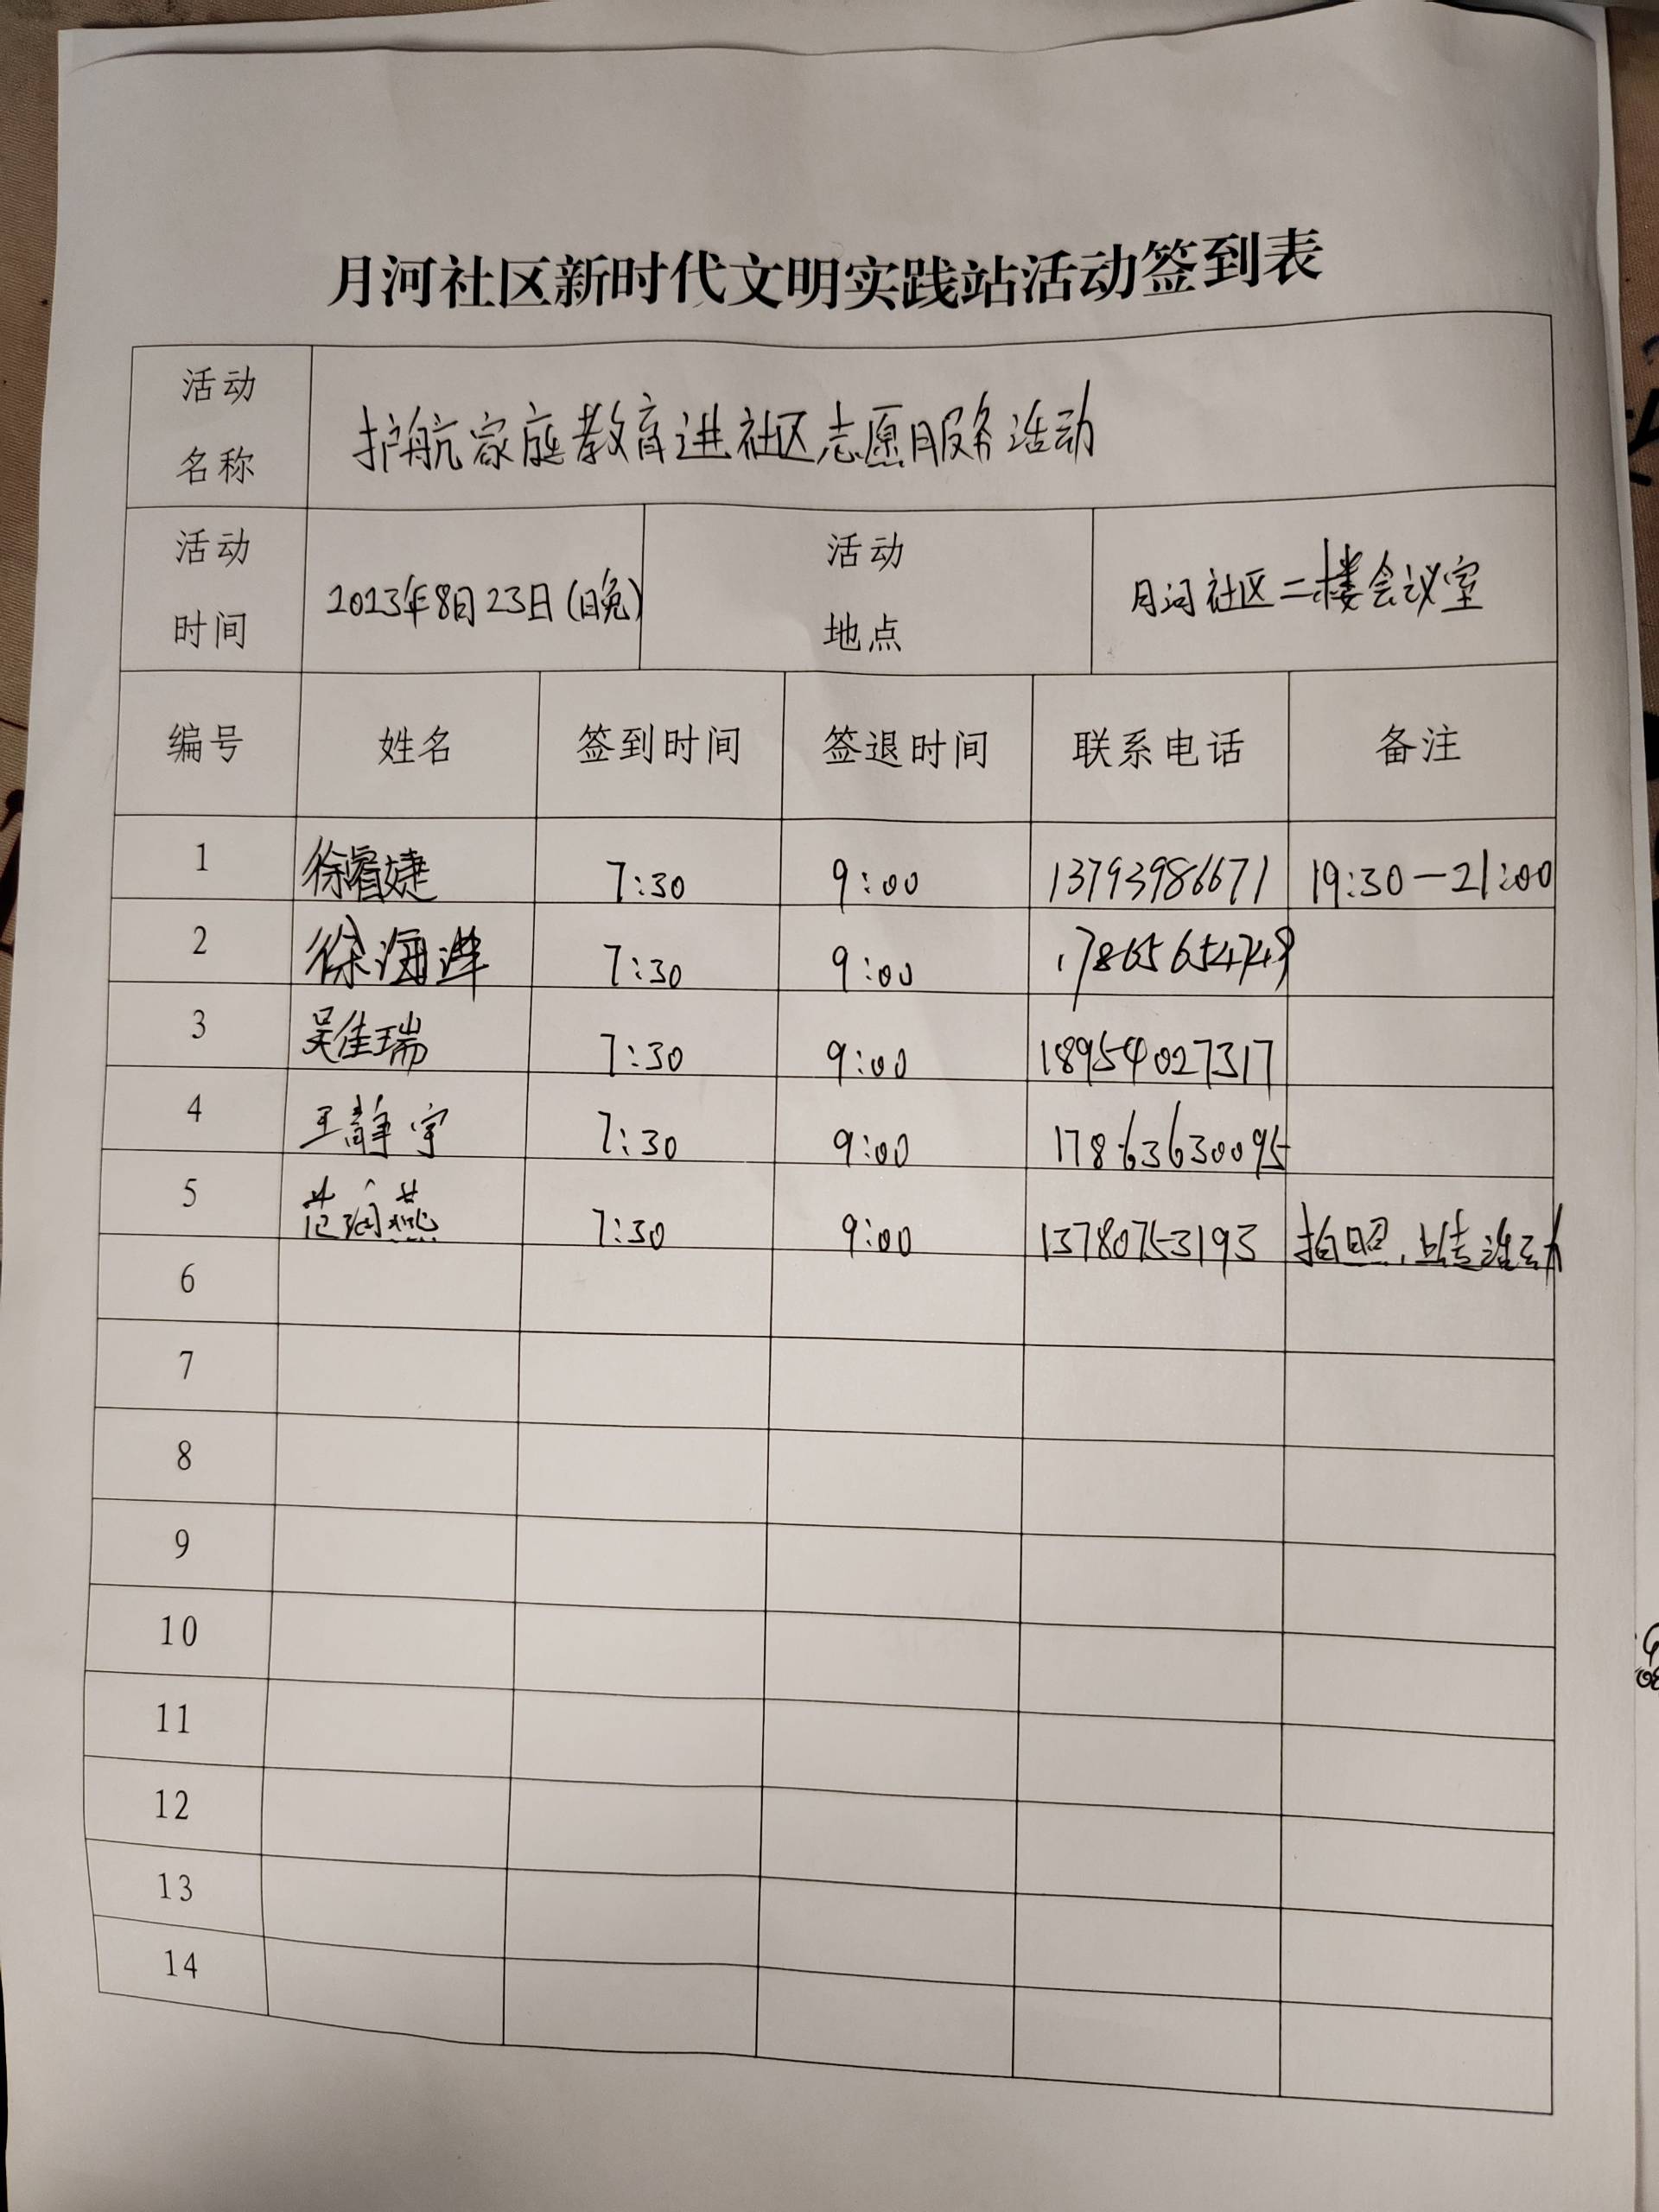 月河社区新时代文明实践站活动签到表
活动名称 护航家庭教育进社区志愿服务活动
活动时间 2023年8月23日(晚) 活动地点 月河社区二楼会议室
编号 姓名 签到时间 签退时间 联系电话 备注
1 徐睿婕 7:30 9:00 13793986671 19:30—21:00
2 徐海洋 7:30 9:00 17865654749
3 吴佳瑞 7:30 9:00 18954027317
4 王静宇 7:30 9:00 17863630095
5 范润燕 7:30 9:00 13780753193 拍照,上传活动
6
7
8
9
10
11
12
13
14